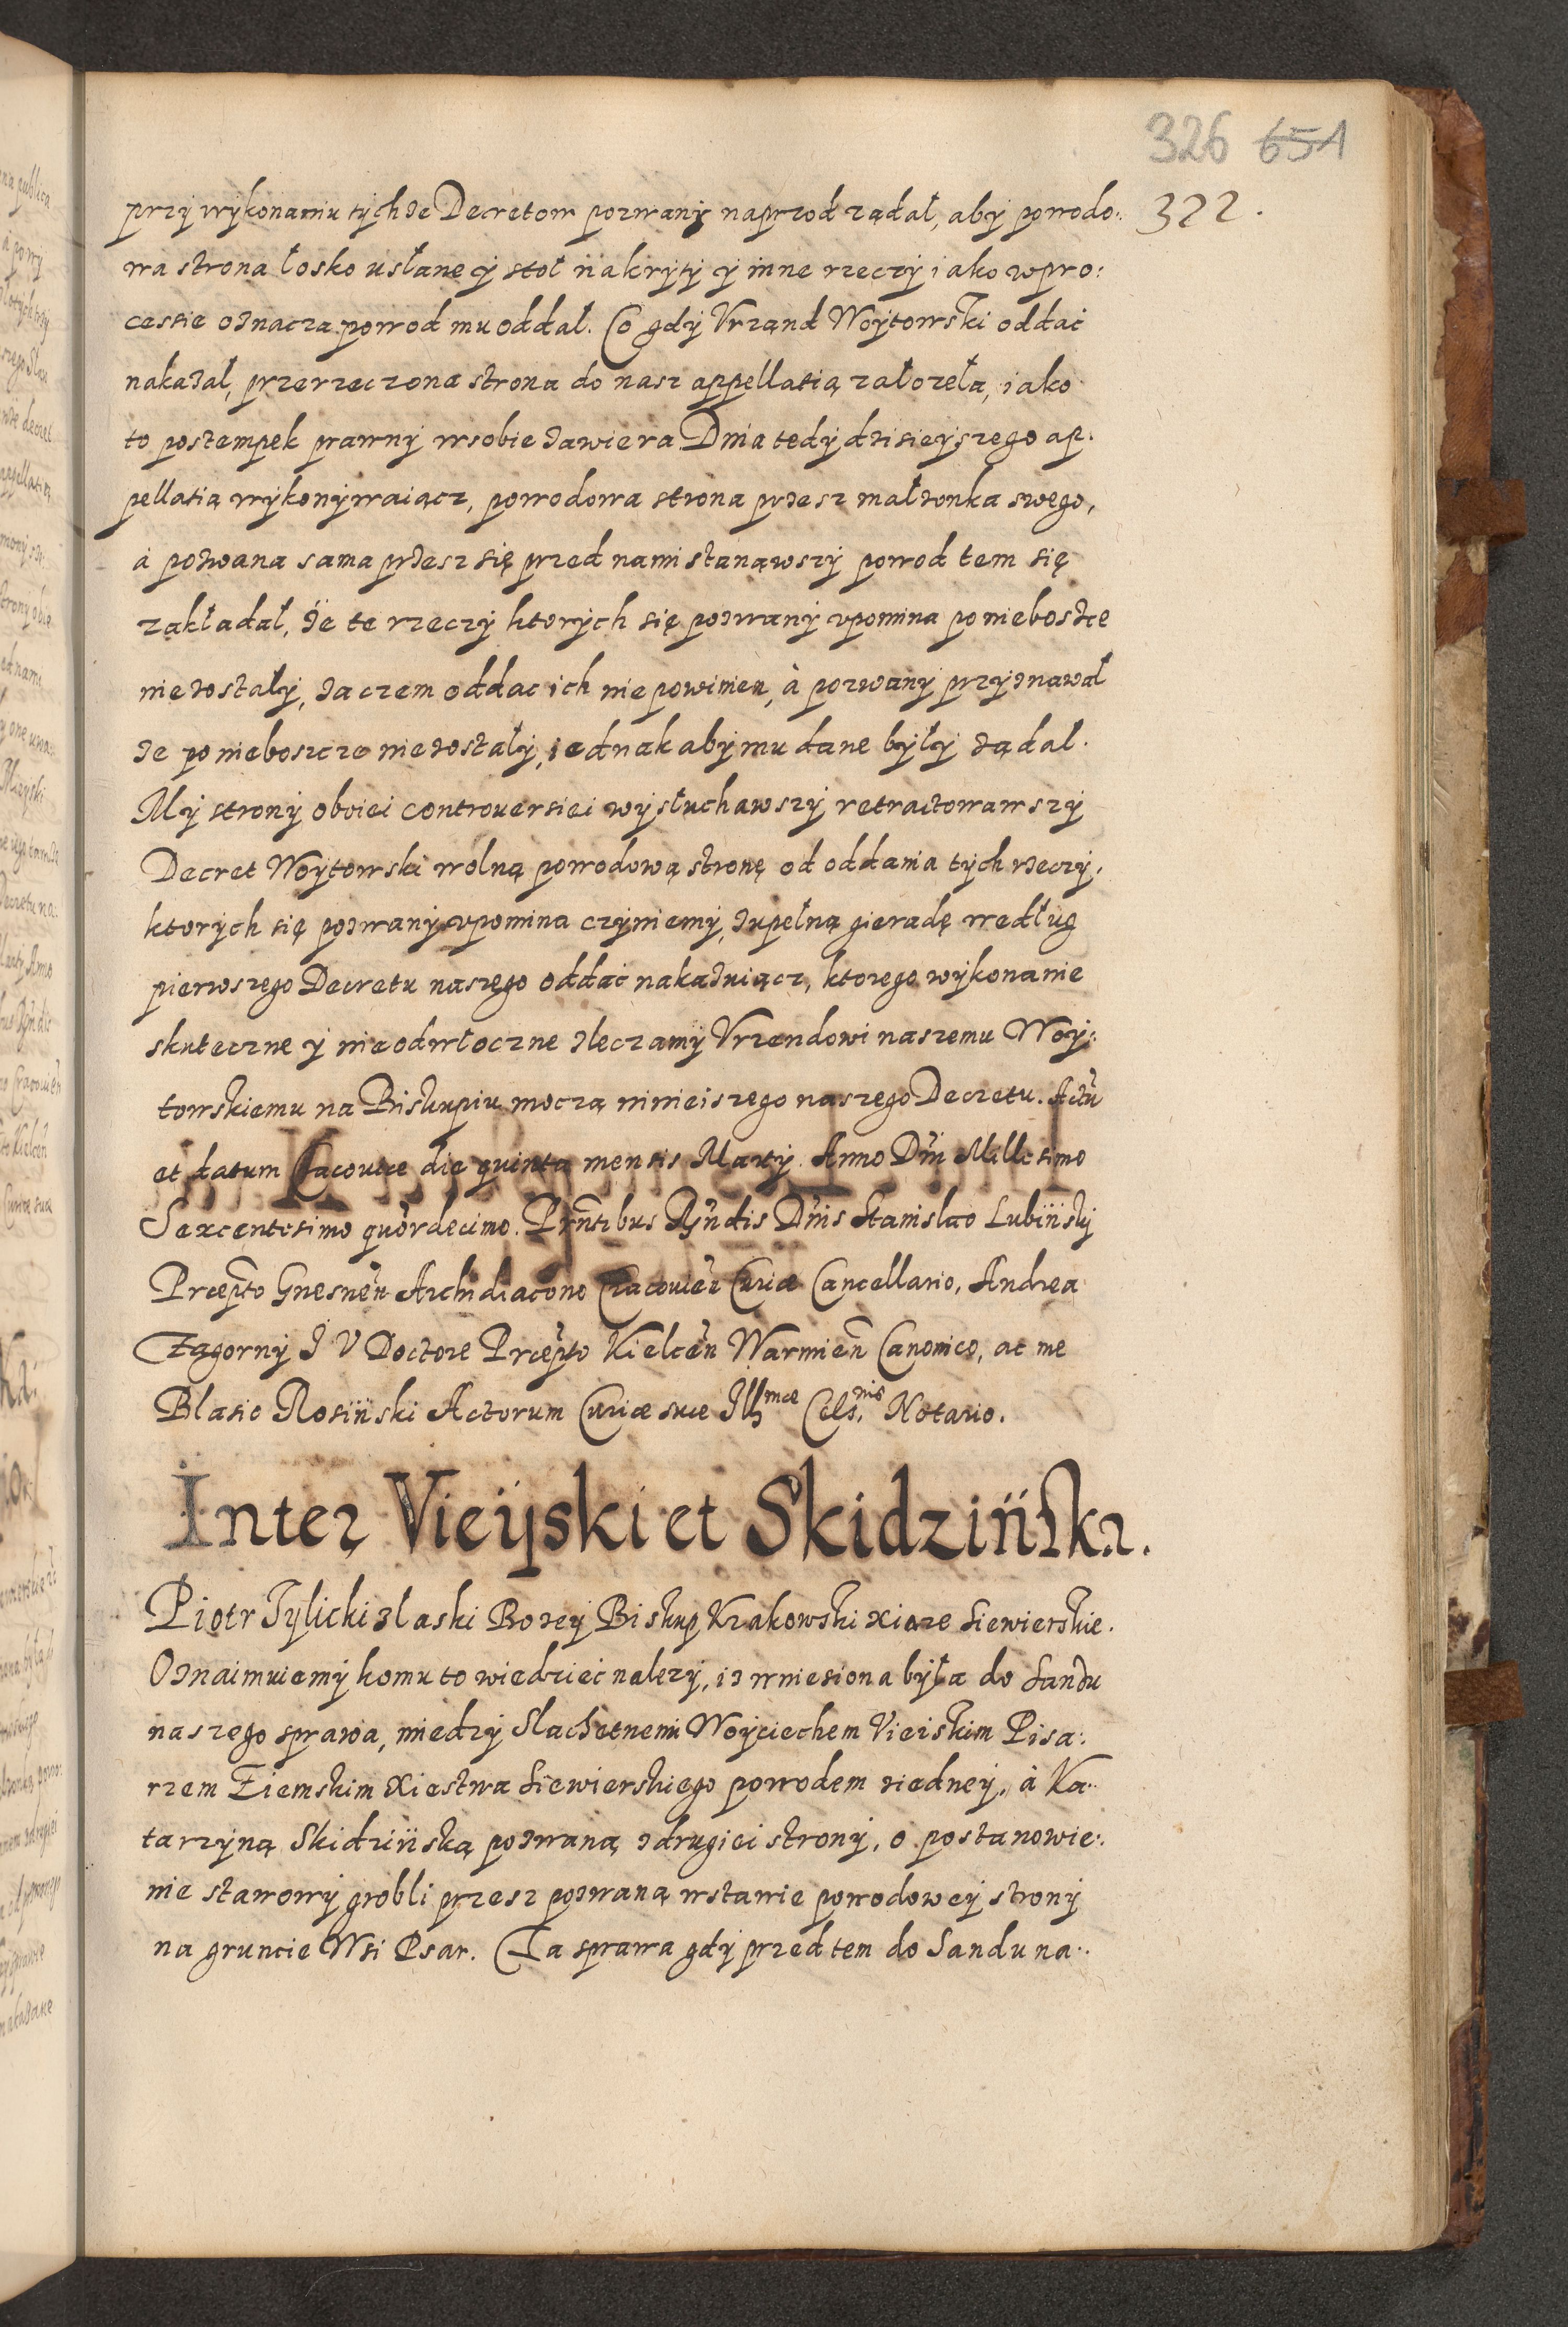 326 651
322.
przy wykonaniu tychze Decretow pozwany naprzod ządał, aby powodo:
wa strona łosko usłane y stoł nakryty y inne rzeczy iako w pro:
cessie oznacza powod mu oddał. Co gdy Vrzand Woytowski oddać
nakazał, przerzeczona strona do nasz appellatią załozeła, iako
to postempek prawny w sobie zawiera Dnia tedy dzisieyszego ap:
pellatią wykonywaiącz, powodowa strona przesz małzonka swego,
à pozwana sama przesz się przed nami stanąwszy powod tem się
zakładał, ze te rzeczy ktorych się pozwany vpomina po niebosce
nie zostały, zaczem oddac ich nie powinien, à pozwany przyznawał
ze po nieboszcze nie zostały, iednak aby mu dane były ządal.
My strony oboiei controuersiei wysłuchawszy retractowawszy
Decret Woytowski wolną powodową stronę od oddania tych rzeczy,
ktorych się pozwany vpomina czyniemy, zupełną gieradę według
pierwszego Decretu naszego oddać nakazuiącz, ktorego wykonanie
skuteczne y nieodwłoczne zleczamy Vrzendowi naszemu Woy:
towskiemu na Biskupiu moczą ninieiszego naszego Decretu. Actū
et datum Cracouiæ die quinta mensis Marty. Anno Dñi Millesimo
Sexcentesimo quõrdecimo. Prñtibus Rñdis Dñis Stanislao Lubiński
Præpto Gnesnen̄ Archidiacono Cracouien̄ Curiæ Cancellario, Andrea
Zagorny J V Doctore Præpto Kielcen̄ Warmien̄ Canonico, ac me
Blasio Rosiński Actorum Curiæ suæ Illmæ Cels,nis Notario.
Inter Vieyski et Skidzińska.
Piotr Tylicki z laski Bozey Biskup Krakowski xiąze Siewierskie.
Oznaimuiemy komu to wiedzieć nalezy, iz wniesiona była do Sandu
naszego sprawa, miedzy Slachetnemi Woyciechem Vieiskim Pisa:
rzem Ziemskim Xiestwa Siewierskiego powodem ziedney, à Ka:
tarzyną Skidzińską pozwaną z drugiei strony, o postanowie:
nie stawowy grobli przesz pozwaną wstawie powodowey strony
na gruncie Wsi Psar. Ta sprawa gdy przed tem do Sandu na: